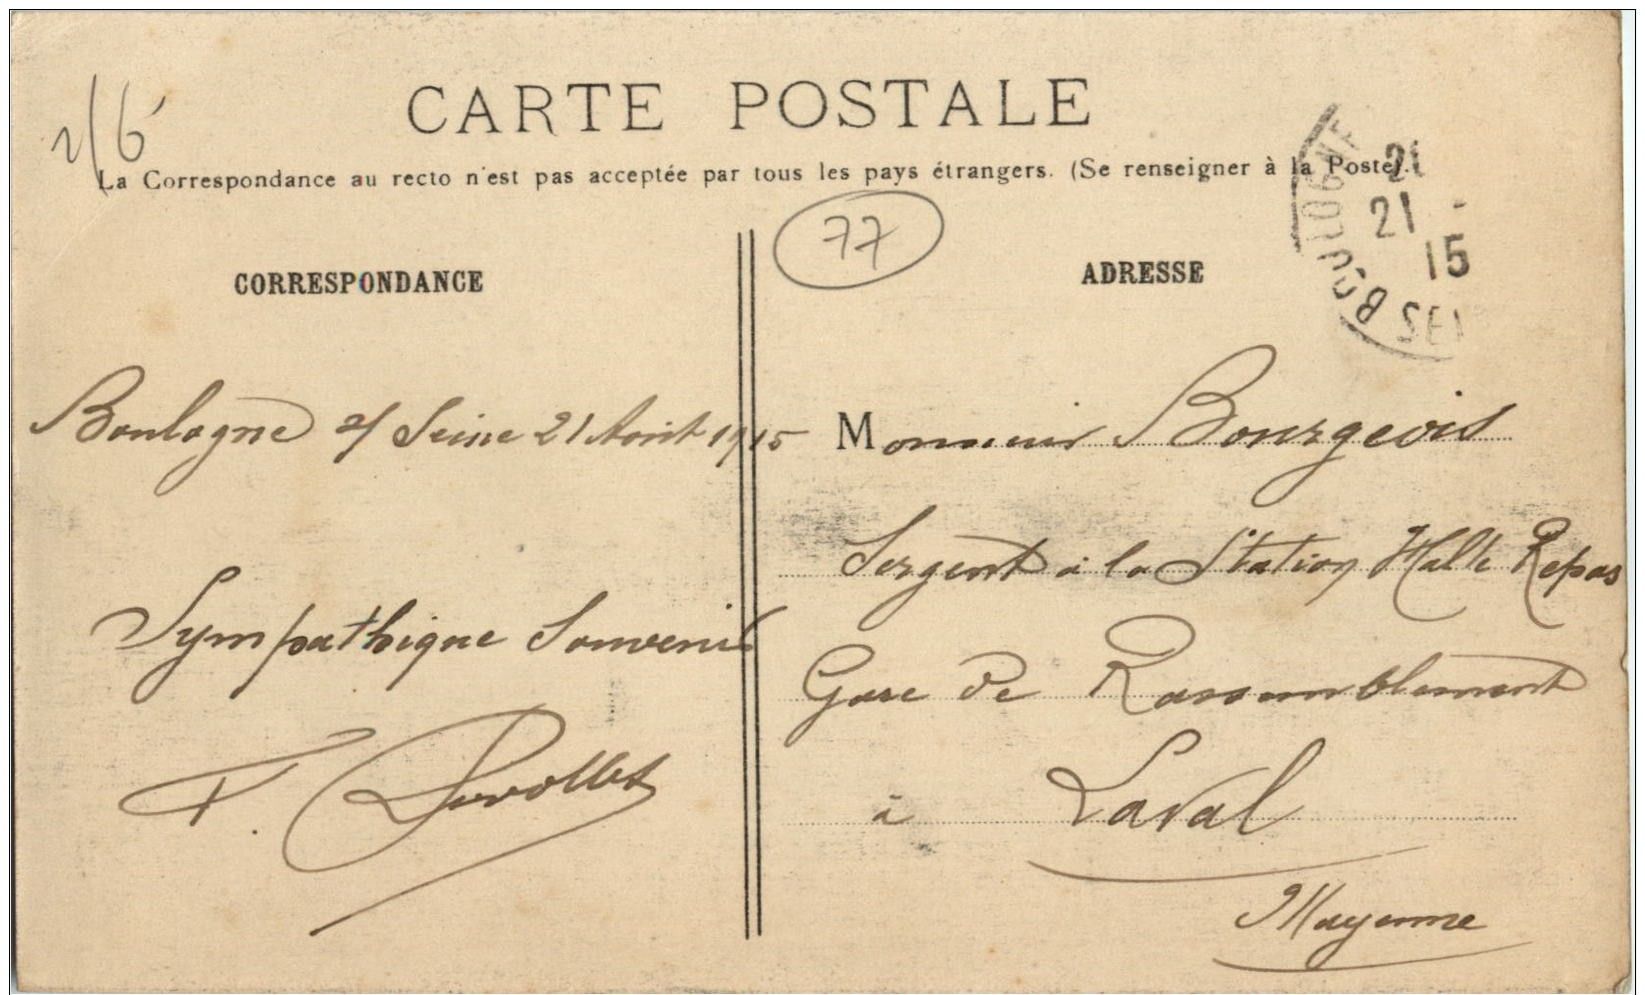 2/6
CARTE POSTALE
La Correspondance au recto n'est pas acceptée par tous les pays étrangers. (Se renseigner à la Poste).
77
BOULOGNE
21
21 -
15
SEI
CORRESPONDANCE
Boulogne s/ Seine 21 Août 1915
Sympathique Souvenir
F.
ADRESSE
Monsieur Bourgeois
Sergent à la Station Halte Repas
Gare de Rassemblement
à Laval
Mayenne